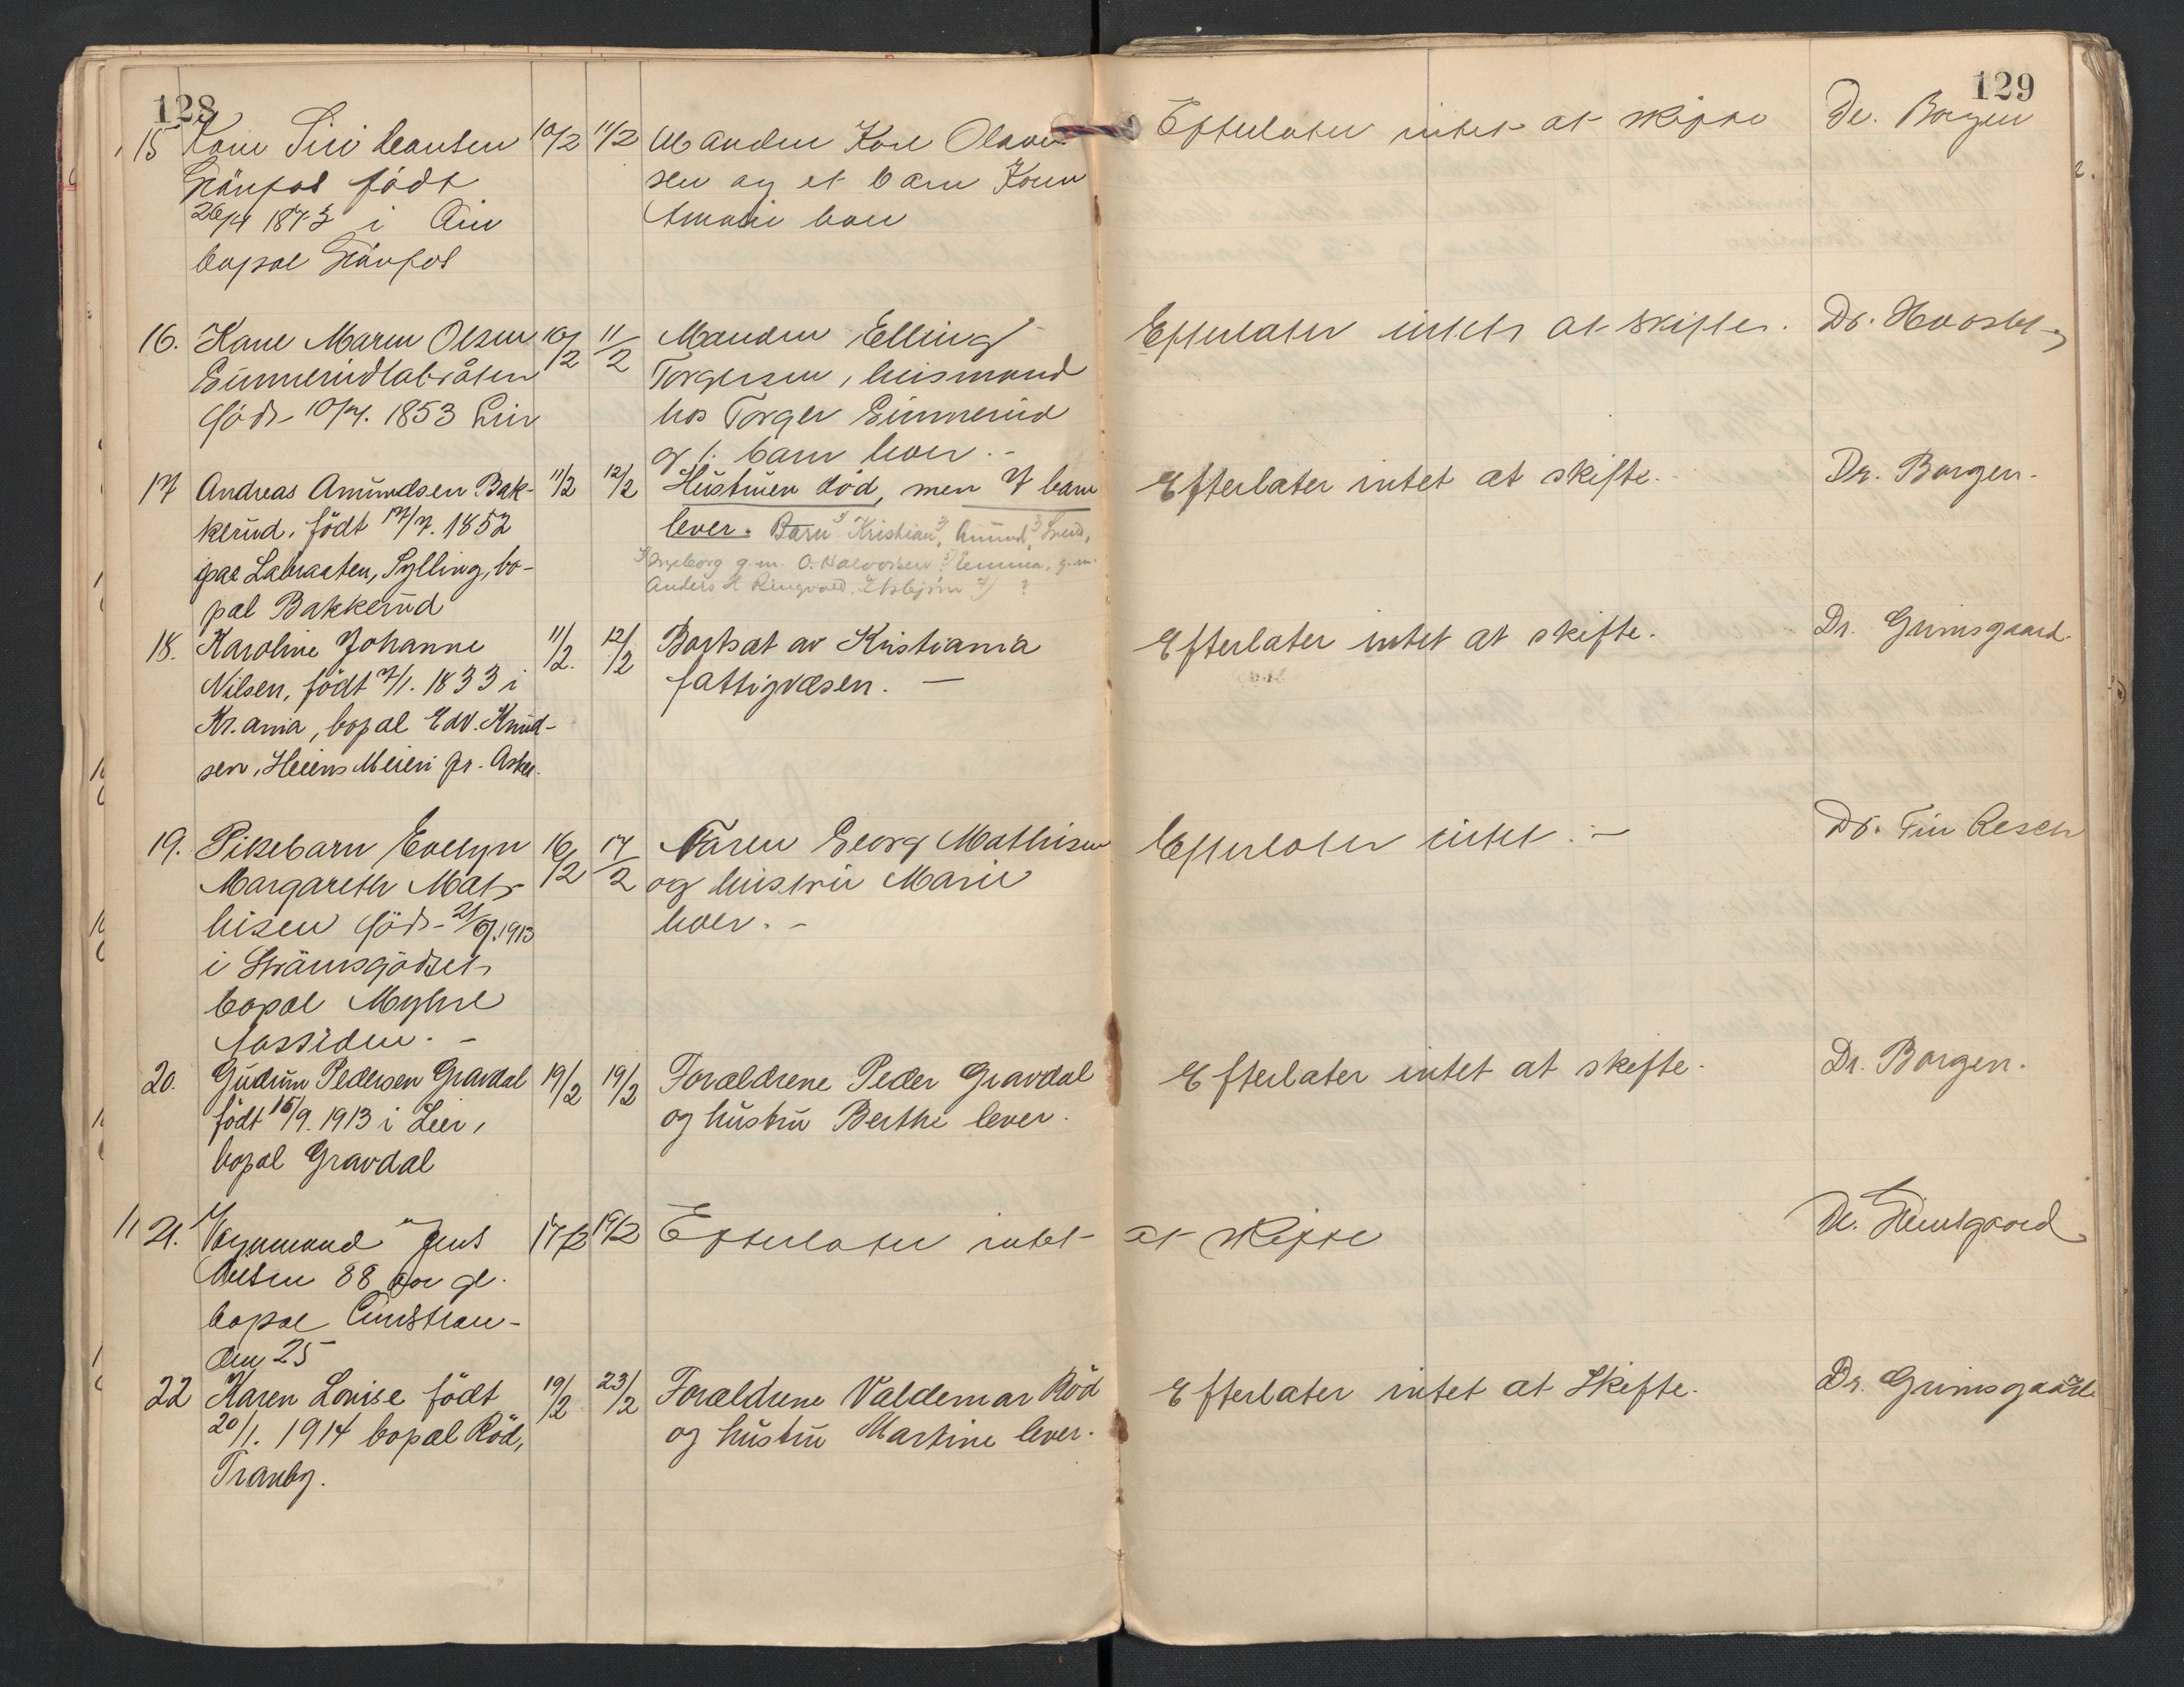 128
129
15 Kone Siri födt
26/4 1873 i
bopæl
10/2 11/2
Manden Olaves-
sen og et barn
Efterlater intet at skifte
Dr. Borgen
16. Kone Maren Olsen
födt 10/4. 1853 Lier
10/2 11/2
Manden Elling
Torgersen, husmand
hos Torger
og 1. barn lever. -
Efterlater intet at skifte.
Dr.
17 Andreas Amundsen Bak-
kerud, födt 17/7. 1852
paa Labraaten, Sylling, bo-
pæl Bakkerud
11/2 12/2
Hustruen död, men 7 barn
lever. Barn 1) Kristian, 2) Amund, 3)
4) Ingeborg g.m. O. Halvorsen 5) Emma, g.m.
Anders Ringvold. 7) ?
Efterlater intet at skifte.
Dr. Borgen.
18. Karoline Johanne
Nilsen, födt 7/1. 1833 i
Kr.ania, bopæl Edv. Knud-
sen, Heiens Meieri pr. Asker.
11/2. 12/2
Bortsat av Kristiania
fattigvæsen. -
Efterlater intet at skifte.
Dr. Grimsgaard.
19. Pikebarn Evelyn
Margareth Mat-
hisen födt 21/9. 1913
i Strömsgodset
bopæl Myhre
Aassiden. -
16/2 17/2
Faren Georg Mathisen
og hustru Marie
lever. -
Efterlater intet. -
Dr. Resch
20. Gudrun Pedersen Gravdal
födt 15/9. 1913 i Lier,
bopæl Gravdal
19/2 19/2
Forældrene Peder Gravdal
og hustru Berthe lever.
Efterlater intet at skifte.
Dr. Borgen.
21. Jens
88 aar gl.
bopæl
25
17/2 19/2
Efterlater intet at skifte
Dr. Grimsgaard
22 Karen Louise födt
20/1. 1914 bopæl Röd,
Tranby.
19/2 23/2
Forældrene Valdemar Röd
og hustru Martine lever.
Efterlater intet at Skifte.
Dr. Grimsgaard.